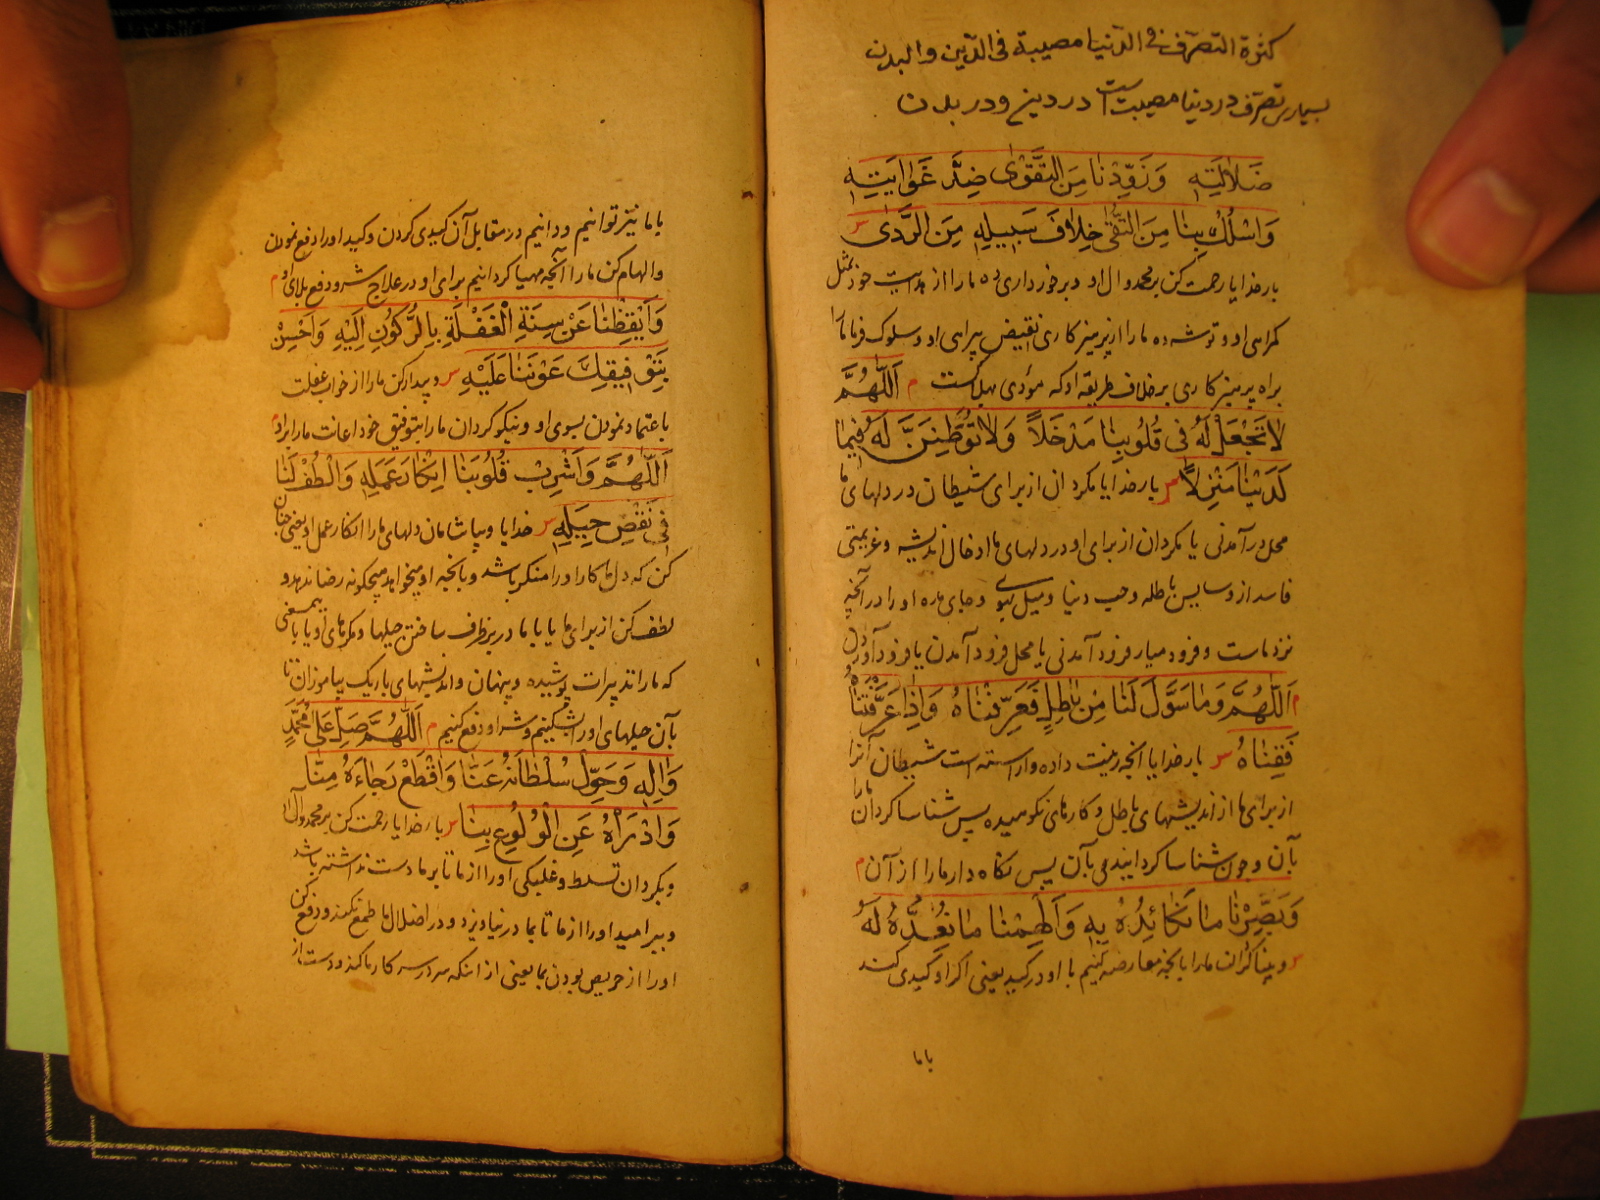 كثرة التصرّف في الدّنيا مصيبة في الدّين والبدن
بسياري تصرّف در دنيا مصيبت است در دين و در بدن
ضَلالَتِهِ وَزَوِّدْنا مِنَ التَّقْوٰى ضِدَّ غَوايَتِهِ
وَاسْلُكْ بِنا مِنَ التُّقىٰ خِلافَ سَبيلِهِ مِنَ الرَّدىٰ س
بارخدايا رحمت كن بر محمد و ال او و برخورداري ده ما را از هدايت خود بمثل
كمراهى او و توشه ده ما را از پرهيزكارى نقيض بيراهى او و سلوك فرما ما را
براه پرهيزكارى برخلاف طريقه او كه مؤدى بهلاكست م اَللّٰهُمَّ
لا تَجْعَلْ لَهُ في قُلُوبِنا مَدْخَلاً وَلا تُوَطِّنَنَّ لَهُ فيما
لَدَيْنا مَنْزِلاً س بارخدايا مكردان از براى شيطان در دلهاى ما
محل درآمدنى يا مكردان از براى او در دلهاى ما ادخال انديشه و عزيمتى
فاسد از وساوس باطله و حب دنيا و ميل بسوى و جاى مده او را در آنچه
نزد ماست و فرود ميار فرود آمدنى يا محل فرود آمدن يا فرود آوردن
م اَللّٰهُمَّ وَما سَوَّلَ لَنا مِنْ باطِلٍ فَعَرِّفْناهُ وَاِذا عَرَّفْتَناهُ
فَقِناهُ س بارخدايا آنچه زينت داده و اراسته است شيطان آنرا
از براى ما از انديشهاى باطل و كارهاى نكوهيده پس شناسا كردان ما را
بآن و چون شناسا كردانيدى بآن پس نكاه دار ما را از آن م
وَبَصِّرْنا ما نُكائِدُهُ بِهِ وَاَلْهِمْنا ما نُعِدُّهُ لَهُ
س و بينا كردان ما را بآنچه معارضه كنيم با او در كيد يعنى اكر او كيدى كند
با ما
با ما نيز توانيم و دانيم در مقابل آن كيدى كردن و كيد او را دفع نمودن
و الهام كن ما را آنچه مهيا كردانيم براى او در علاج شر و دفع بلاى او م
وَاَيْقِظْنا عَنْ سِنَةِ الْغَفْلَةِ بِالرُّكُونِ اِلَيْهِ وَاَحْسِنْ
بِتَوْفيقِكَ عَوْنَنا عَلَيْهِ س و بيدار كن ما را از خواب غفلت
باعتماد نمودن بسوى او و نيكو كردان ما را بتوفيق خود اعانت ما را بر او م
اَللّٰهُمَّ وَاَشْرِبْ قُلُوبَنا اِنْكارَ عَمَلِهِ وَالْطُفْ لَنا
في نَقْضِ حِيَلِهِ س خدايا و بياشامان دلهاى ما را انكار عمل او يعنى چنان
كن كه دل ما كار او را منكر باشد و بآنچه او ميخواهد هيچكونه رضا ندهد و
لطف كن از براى ما يا با ما در برطرف ساختن حيلها و مكرهاى او يا باين معنى
كه ما را تدبيرات پوشيده و پنهان و انديشهاى باريك بياموزان تا
بآن حيلهاى او را بشكنيم و شر او دفع كنيم م اَللّٰهُمَّ صَلِّ عَلىٰ مُحَمَّدٍ
وَاٰلِهِ وَحَوِّلْ سُلْطانَهُ عَنّا وَاقْطَعْ رَجاءَهُ مِنّا
وَادْرَأْهُ عَنِ الْوُلُوعِ بِنا س بارخدايا رحمت كن بر محمد و آل او
و بكردان تسلط و غلبكى او را از ما تا بر ما دست نداشته باشد
و ببر اميد او را از ما تا بما در نياويزد و در اضلال ما طمع نكند و دفع كن
او را از حريص بودن بما يعنى از اينكه سر در سر كار ما كند و دست از